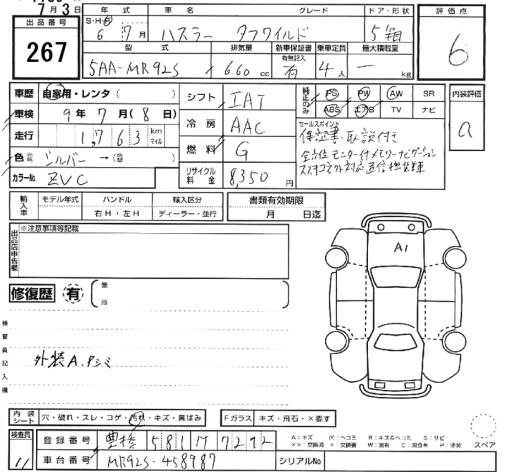 7月3日
出品番号
267
年式 車名 グレード ドア・形状 評価点
S・H・R 6年 7月 ハスラー タフワイルド 5ドア 6
型式 排気量 新車保証書 乗車定員 最大積載量
有無記入
5AA-MR92S 660 cc 有 4人 ー kg
車歴 自家用・レンタ( )
車検 9年7月(8日)
走行 1,763 km マイル
色 シルバー→( )
カラーNo. ZVC
シフト IAT
冷房 AAC
燃料 G
リサイクル料金 8,350円
純正のみ PS PW AW SR
ABS エアB TV ナビ
内装評価
a
セールスポイント
保証書・取説付き
全方位モニター付メモリーナビゲーション
スズキコネクト対応通信機装着車
輸入車 モデル年式 ハンドル 輸入区分
右H・左H ディーラー・並行
書類有効期限
月 日迄
出品店申告欄
※注意事項等記載
修復歴 有 箇所
A1
検査員記入欄
外装A、Pシミ
内装シート 穴・破れ・スレ・コゲ・汚れ・キズ・黄ばみ
Fガラス キズ・飛石・×要す
検査員 11
登録番号 豊橋 581 ワ 7292
車台番号 MR92S-458987
シリアルNo
A:キズ H:ヘコミ R:キズ&ヘコミ S:サビ
スペア